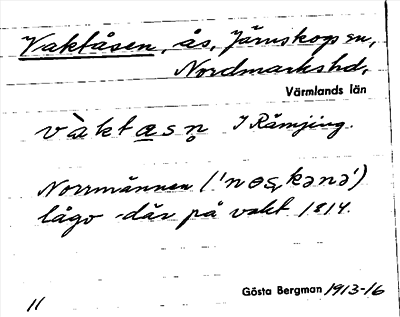 Vaktåsen, ås, Järnskogs sn,
Nordmarks hd,
Värmlands län
I Råmjing.
Norrmännen
lågo där på vakt 1814.
Gösta Bergman 1913-16
11